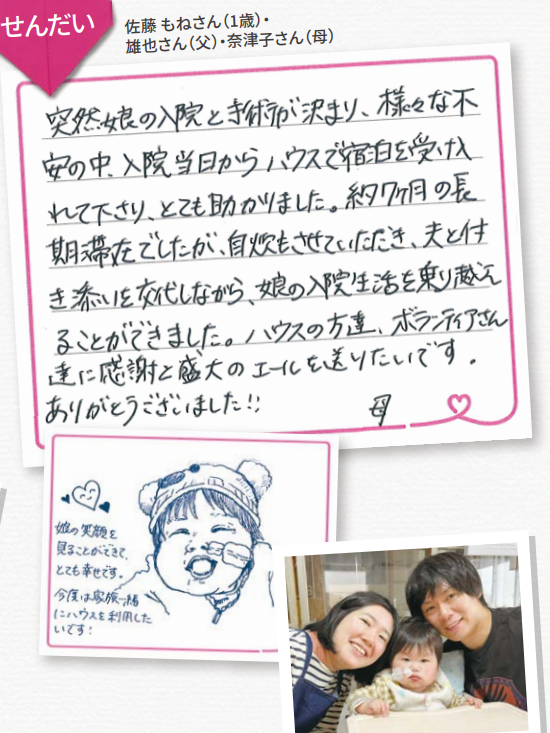 せんだい
佐藤 もねさん（1歳）・
雄也さん（父）・奈津子さん（母）
突然娘の入院と手術が決まり、様々な不
安の中、入院当日からハウスで宿泊を受け入
れて下さり、とても助かりました。約7ヶ月の長
期滞在でしたが、自炊もさせていただき、夫と付
き添いを交代しながら、娘の入院生活を乗り越え
ることができました。ハウスの方達、ボランティアさん
達に感謝と盛大のエールを送りたいです。
ありがとうございました!!
母
娘の笑顔を
見ることができて、
とても幸せです。
今度は家族一緒
にハウスを利用した
いです！